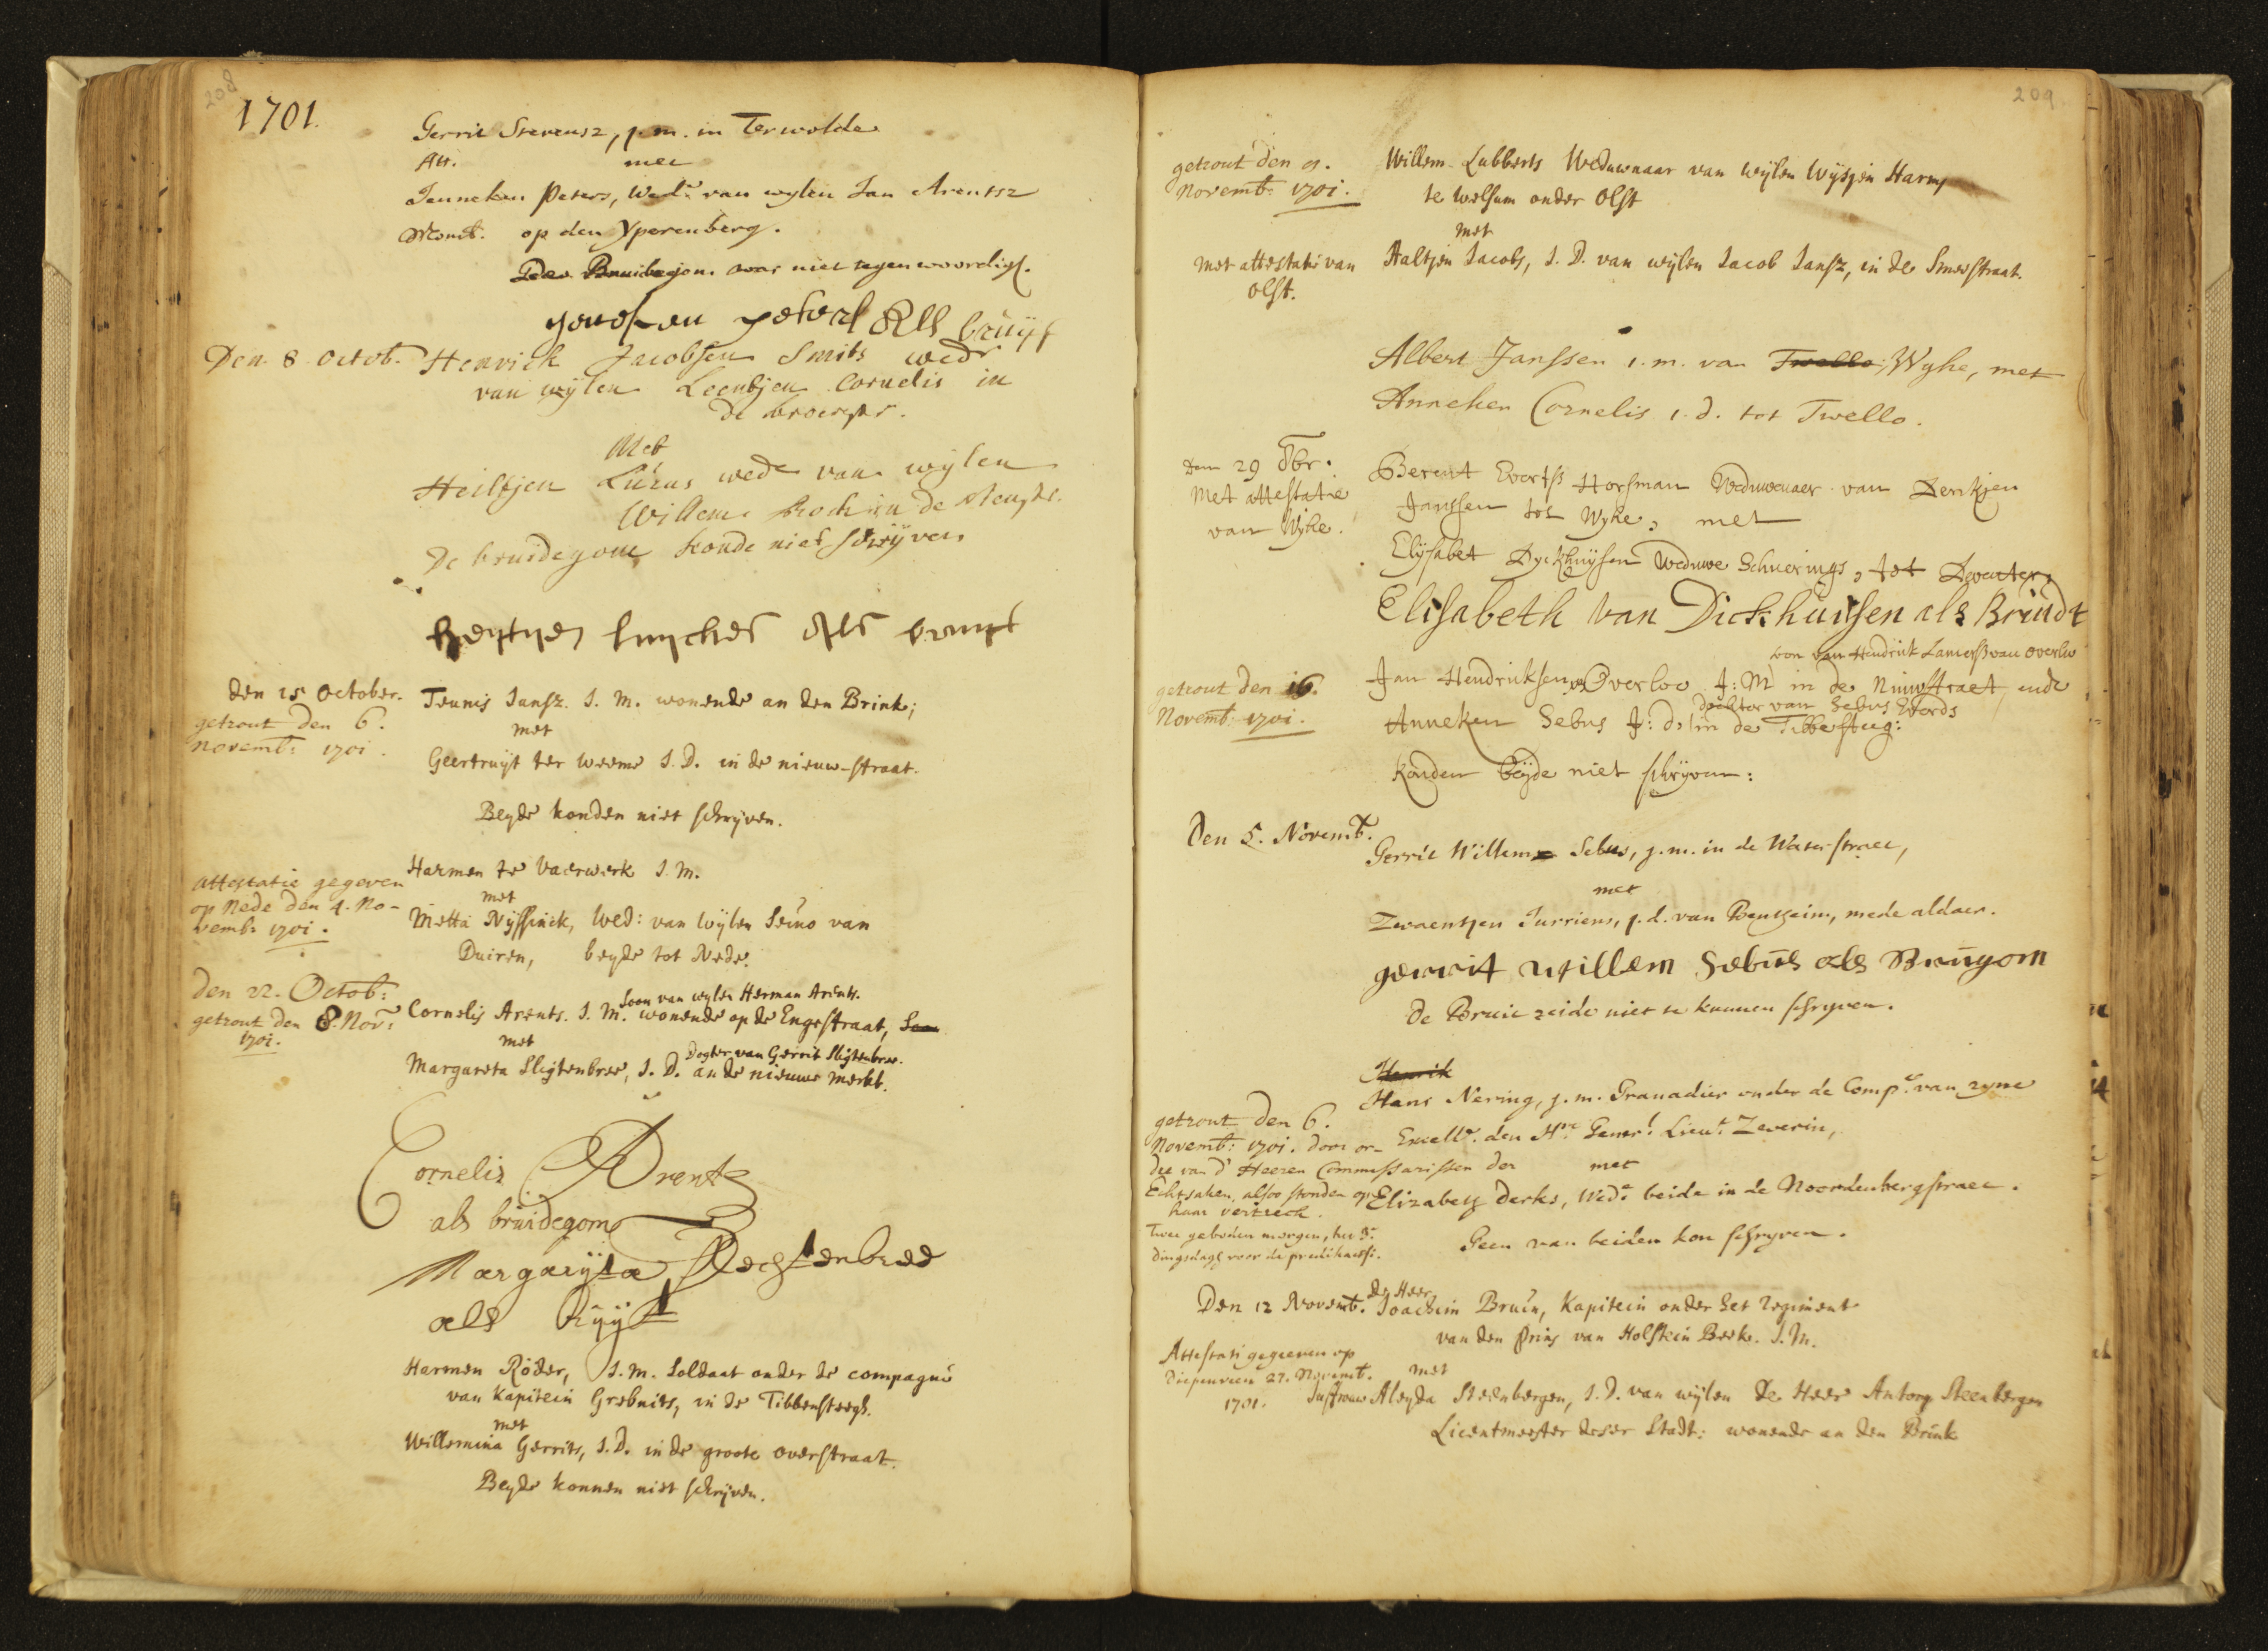 208
1701.
Gerrit Stevensz, j.m. in Terwolde
Att. met
Jenneken Peters, Wede. van wylen Jan Arentsz
op den Yperenberg.
was niet tegenwoordigh.
peters als bruyt
Den 8 Octob. Henrick Jacobsen Smits wedr
van wylen Leentjen Cornelis in
de
Met
Heiltjen Lucas wede van wylen
Willem in de
De bruidegom konde niet schrijven
als bruyt
den 15 October. Teunis Jansz. J. M. wonende an den Brink;
getrout den 6. met
Novemb: 1701. Geertruijt ter weeme J. D. in de nieuw-straat.
Beyde konden niet schrijven.
Harmen te Vaerwerk J. M.
attestatie gegeven met
op Nede den 4. No- Metta Nijssinck, Wed: van wijlen Seino van
vemb: 1701. Duiren, beyde tot Nede.
Den 22. Octob: Soon van wylen Herman Arents.
getrout den 8. Nov: Cornelis Arents. J. M. wonende op de Engestraat, Soon
1701. met
Dogter van Gerrit Sligtenbree.
Margareta Sligtenbree, J. D. an de nieuwe Merkt.
Cornelis Arentz
als bruidegom
Margarijta Slechtenbree
als
Harmen Röder, J. M. Soldaat onder de compagnie
van Kapitein Grebnits, in de Tibbensteegh.
met
Willemina Gerrits, J. D. in de groote overstraat.
Beyde konnen niet schrijven.
209
getrout den 9. Willem Lubberts Weduwnaar van wijlen Wijsjen Harms
Novemb: 1701. te Welsum onder Olst
met
Met attestatie van Aaltjen Jacobs, J. D. van wijlen Jacob Jansz, in de Smeestraat.
Olst.
Albert Janssen j. m. van Twello, Wyhe, met
Anneken Cornelis j. d. tot Twello.
Den 29 8br. Berent Evertss Horsman Weduwenaer van Derkjen
Met attestatie Janssen tot Wyhe, met
van Wyhe. Elijsabet Dyckhuijsen Weduwe Schuerings, tot Deventer,
Elisabeth van Dickhuisen als Bruidt
soon van Hendrick Lamerss van Overloo
getrout den 16. Jan Hendriksen Overloo J: M in de Nieuwstraet, ende
Novemb: 1701. dochter van Sebus Everds
Anneken Sebus J: d: in de Tibbesteeg:
konden beijde niet schrijven:
Den 5. Novemb. Gerrit Willem Sebus, j. m. in de Waterstraet,
met
Zwaentjen Jurriens, j. d. van Bentheim, mede aldaer.
gerrit willem Sebus als Brugom
de Bruit zeide niet te kunnen schryven.
Henrik
Hans Nering, j. m. Granadier onder de Compe. van zyne
getrout den 6. Excelle. den Hre. Generl. Lieut. Zeverin,
Novemb: 1701. door or-
dre van d' Heeren Commissarissen der met
Echtsaken, alsoo stonden op Elizabeth Derks, Wede. beide in de Noordenbergstraet.
haar vertreck.
Twee geboden morgen, het 3e Geen van beiden kon schryven.
dingsdagh voor de predikatie.
de Heer
Den 12 Novemb. Joachim Bruin, Kapitein onder het regiment
van den Prins van Holstein Beek. J. M.
Attestatie gegeven op
Diepenveen 27. Novemb. met
1701. Juffrouw Aleyda Steenbergen, J. D. van wijlen De Heer Antony Steenbergen
Licentmeester deser Stadt: wonende an den Brink